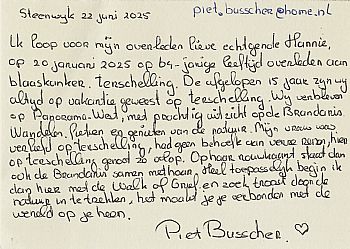 Steenwyk 22 juni 2025 piet.busscher@home.nl
Ik loop voor mijn overleden lieve echtgenote Hannie,
op 20 januari 2025 op 64-jarige leeftijd overleden aan
blaaskanker. Terschelling. De afgelopen 15 jaar zijn wij
altijd op vakantie geweest op Terschelling. Wij verbleven
op Panorama-West, met prachtig uitzicht op de Brandaris.
Wandelen, fietsen en genieten van de natuur. Mijn vrouw was
verliefd op terschelling, had geen behoefte aan verre reizen, hier
op terschelling genoot zo volop. Op haar rouwkaart staat dan
ook de Brandaris samen met haar, heel toepasselijk begin ik
dan hier met de Walk of Grief en zoek troost door de
natuur in te trekken, het maakt je verbonden met de
wereld op je heen.
Piet Busscher